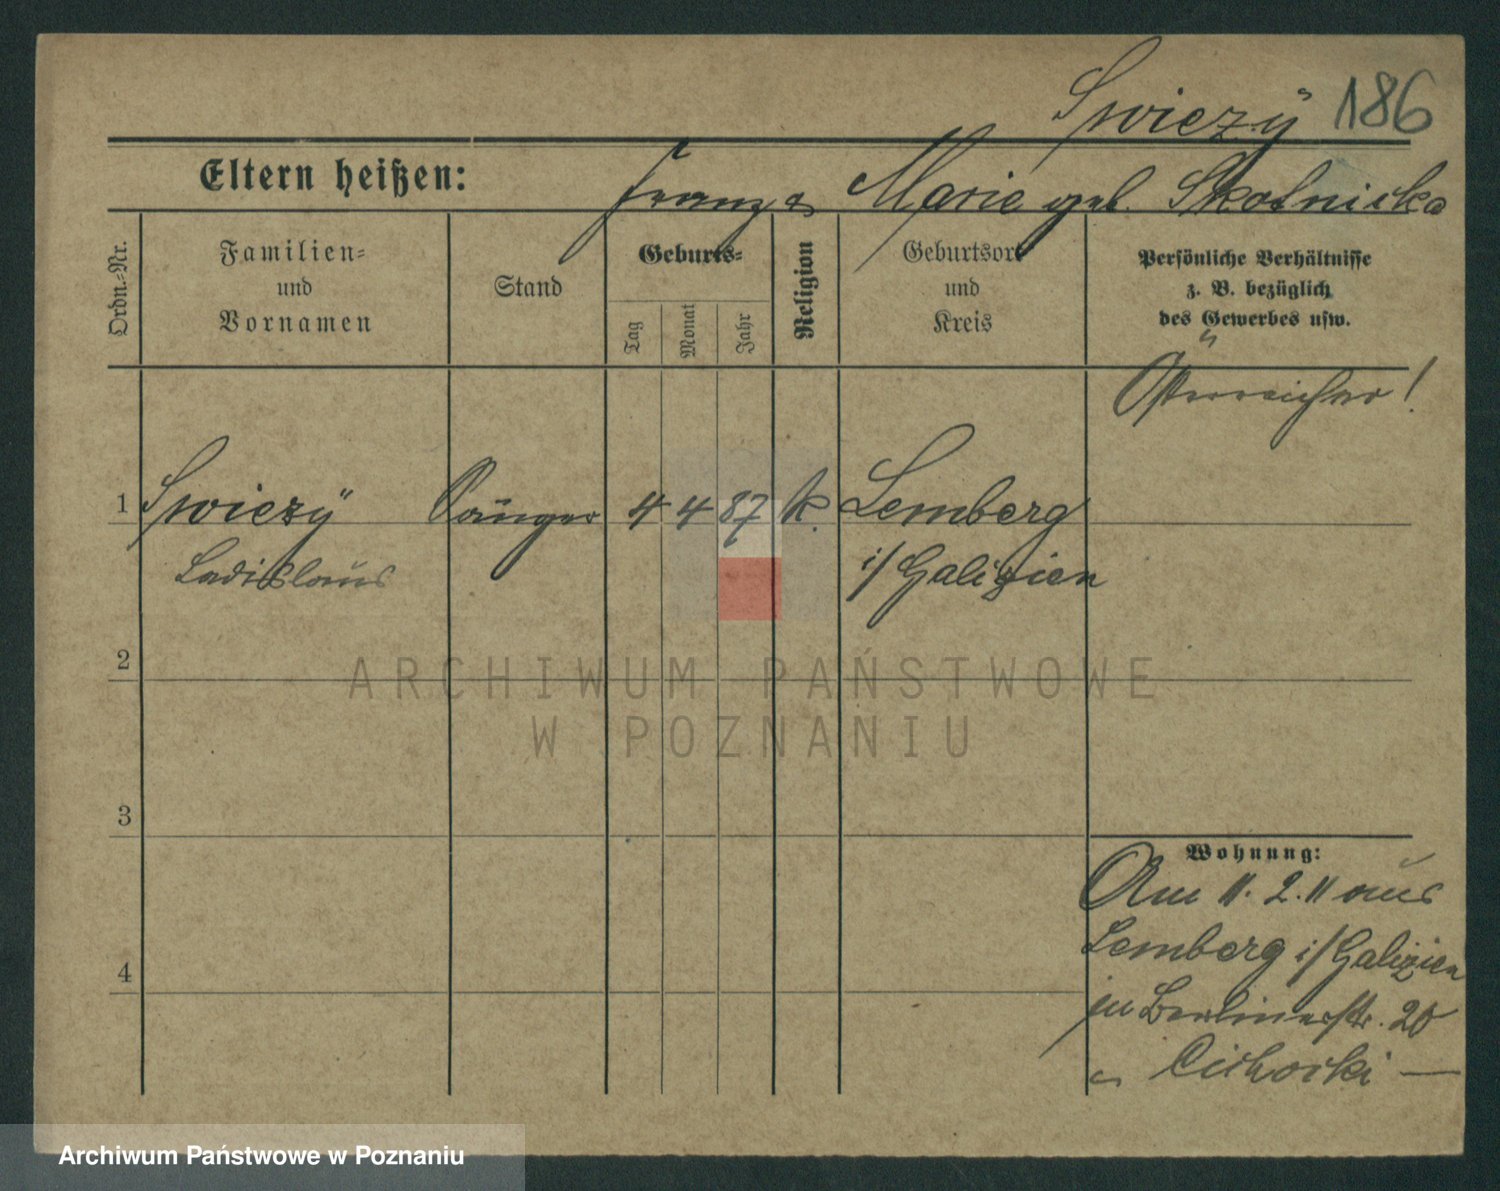 Swiezÿ 186
Eltern heißen: Franz u Marie geb. Skotnicka
Ordn.-Nr.
Familien-
und
Vornamen
Stand
Geburts-
Tag
Monat
Jahr
Religion
Geburtsort
und
Kreis
Persönliche Verhältnisse
z. B. bezüglich
des Gewerbes usw.
Österreicher!
1 Swiezÿ Sänger 4 4 87 k. Lemberg
Ladislaus i/Galizien
2
ARCHIWUM PAŃSTWOWE
W POZNANIU
3
Wohnung:
Am 11. 2. 11 aus
Lemberg i/Galizien
4
in Berlinerstr. 20
Cichocki —
Archiwum Państwowe w Poznaniu